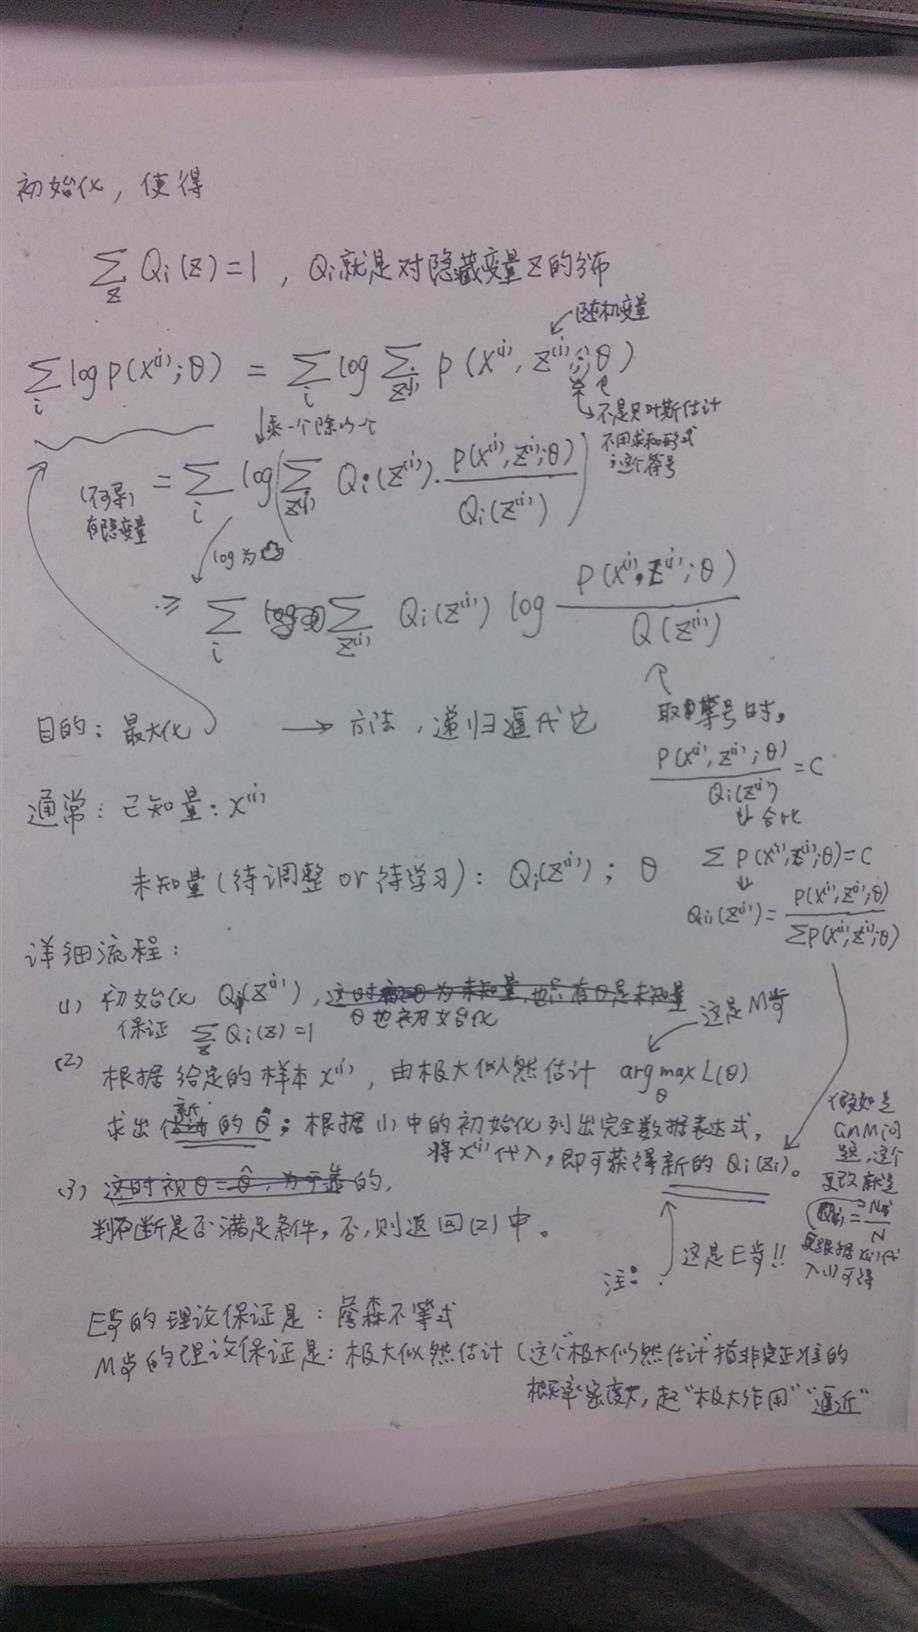 初始化，使得
∑_z Qi(z)=1，Qi就是对隐藏变量z的分布
随机变量
∑_i log p(x⁽ⁱ⁾;θ) = ∑_i log ∑_z⁽ⁱ⁾ p(x⁽ⁱ⁾, z⁽ⁱ⁾;θ)
乘一个除以一个
不是贝叶斯估计
不用求和形式
;这个符号
(不可导)
有隐变量
= ∑_i log(∑_z⁽ⁱ⁾ Qi(z⁽ⁱ⁾)·p(x⁽ⁱ⁾,z⁽ⁱ⁾;θ)/Qi(z⁽ⁱ⁾))
log为凸
≥ ∑_i ∑_z⁽ⁱ⁾ Qi(z⁽ⁱ⁾) log P(x⁽ⁱ⁾,z⁽ⁱ⁾;θ)/Q(z⁽ⁱ⁾)
目的：最大化 → 方法，递归逼代它
取等号时，
P(x⁽ⁱ⁾,z⁽ⁱ⁾;θ)/Qi(z⁽ⁱ⁾)=C
通常：已知量：x⁽ⁱ⁾
未知量(待调整or待学习)：Qi(z⁽ⁱ⁾)；θ
∑P(x⁽ⁱ⁾,z⁽ⁱ⁾;θ)=C
Qi(z⁽ⁱ⁾)=P(x⁽ⁱ⁾,z⁽ⁱ⁾;θ)/∑P(x⁽ⁱ⁾,z⁽ⁱ⁾;θ)
详细流程：
(1) 初始化 Qi(z⁽ⁱ⁾)，这时θ为未知量，也只有θ是未知量
θ也初始化
保证 ∑_z Qi(z)=1
这是M步
(2) 根据给定的样本x⁽ⁱ⁾，由极大似然估计 arg max_θ L(θ)
求出新的θ；根据(1)中的初始化列出完全数据表达式，
将x⁽ⁱ⁾代入，即可获得新的Qi(zi)。
假如是
GMM问
题，这个
更改就是
(3) 这时视θ=θ̂，为于靠的，
判断是否满足条件，否，则返回(2)中。
注：这是E步!!
E步的理论保证是：詹森不等式
M步的理论保证是：极大似然估计(这个极大似然估计指非完正准的
概率密度，起"极大作用""逼近"